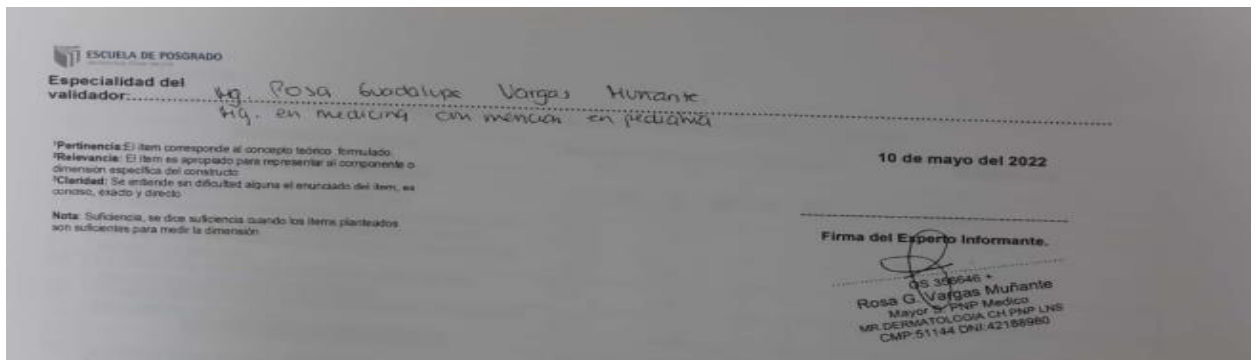 ESCUELA DE POSGRADO
Especialidad del
validador:........ Mg. Rosa Guadalupe Vargas Muñante
Mg. en medicina con mención en pediatría
¹Pertinencia:El ítem corresponde al concepto teórico formulado.
²Relevancia: El ítem es apropiado para representar al componente o
dimensión específica del constructo
³Claridad: Se entiende sin dificultad alguna el enunciado del ítem, es
conciso, exacto y directo
Nota: Suficiencia, se dice suficiencia cuando los ítems planteados
son suficientes para medir la dimensión
10 de mayo del 2022
Firma del Experto Informante.
OS 356646 +
Rosa G. Vargas Muñante
Mayor S. PNP Medico
MR.DERMATOLOGIA CH.PNP LNS
CMP:51144 DNI:42188980